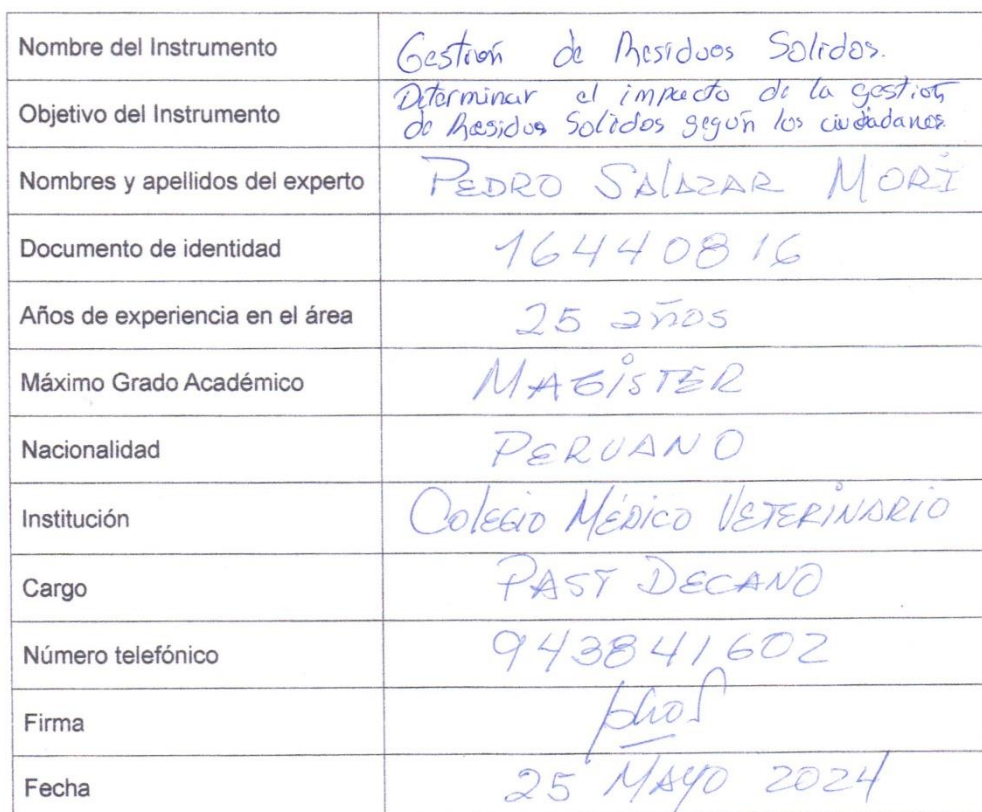 Nombre del Instrumento Gestión de Residuos Solidos.
Objetivo del Instrumento Determinar el impacto de la gestión
de Residuos Solidos según los ciudadanos.
Nombres y apellidos del experto PEDRO SALAZAR MORI
Documento de identidad 16440816
Años de experiencia en el área 25 años
Máximo Grado Académico MAGÍSTER
Nacionalidad PERUANO
Institución COLEGIO MÉDICO VETERINARIO
Cargo PAST DECANO
Número telefónico 943841602
Firma
Fecha 25 MAYO 2024